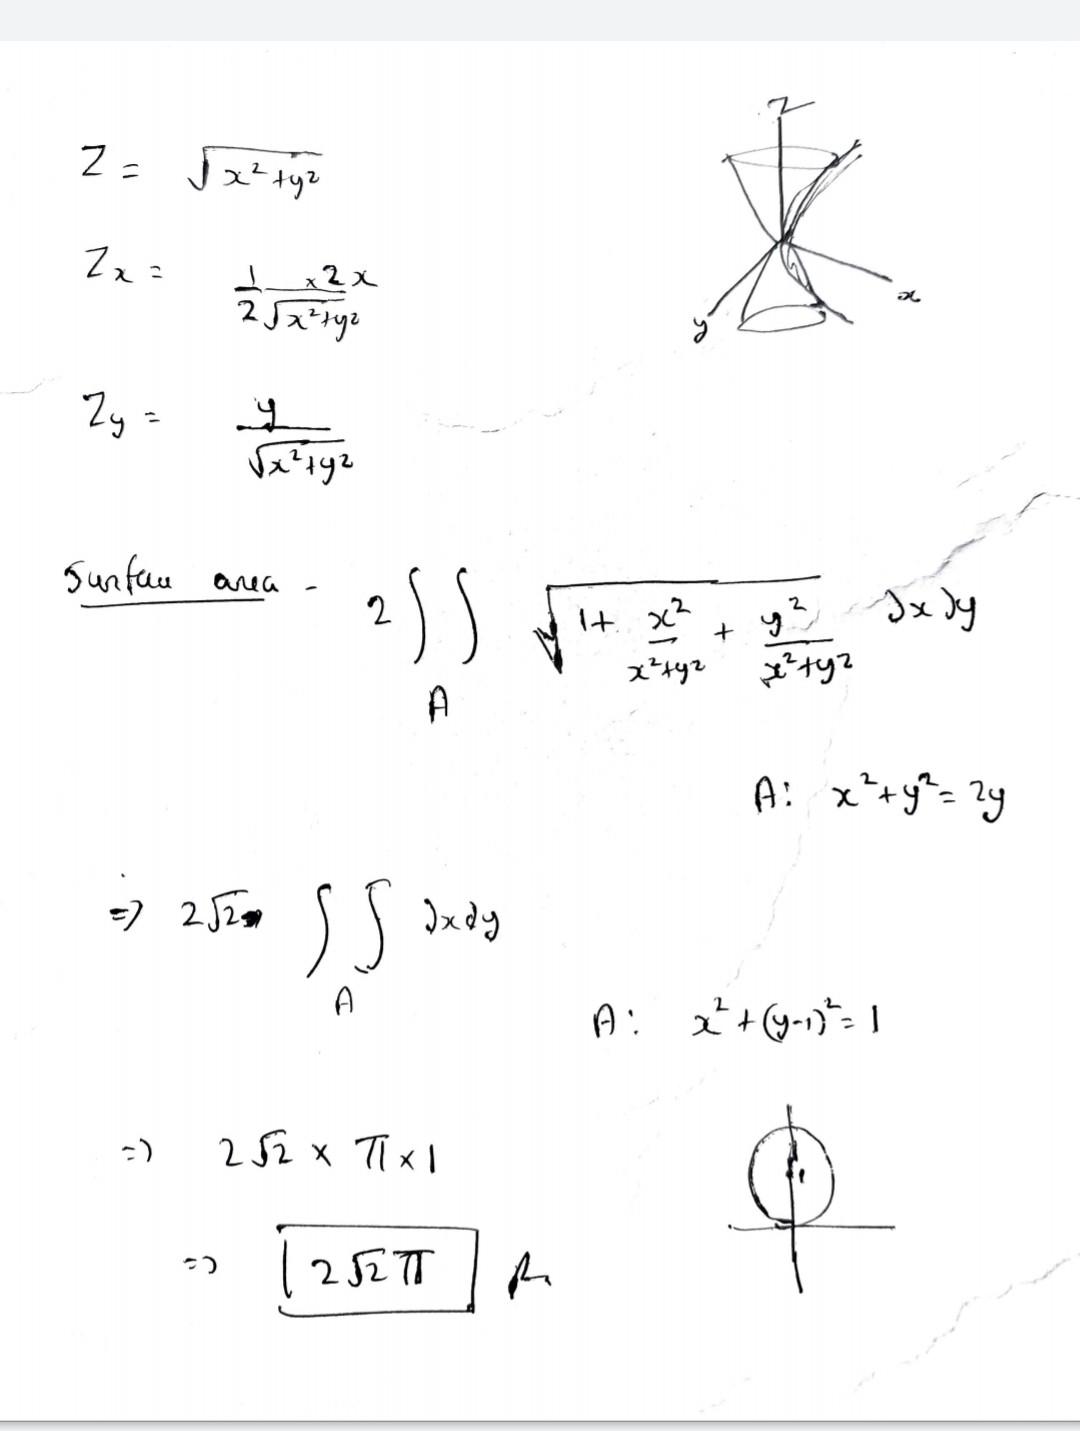 Z
Z = √(x²+y²)
x
y
Zx = 1/2 × 2x/√(x²+y²)
Zy = y/√(x²+y²)
Surface area - 2 ∫∫_A √(1 + x²/(x²+y²) + y²/(x²+y²)) dx dy
A: x²+y² = 2y
=> 2√2 ∫∫_A dx dy
A: x² + (y-1)² = 1
=> 2√2 × π × 1
=> 2√2 π